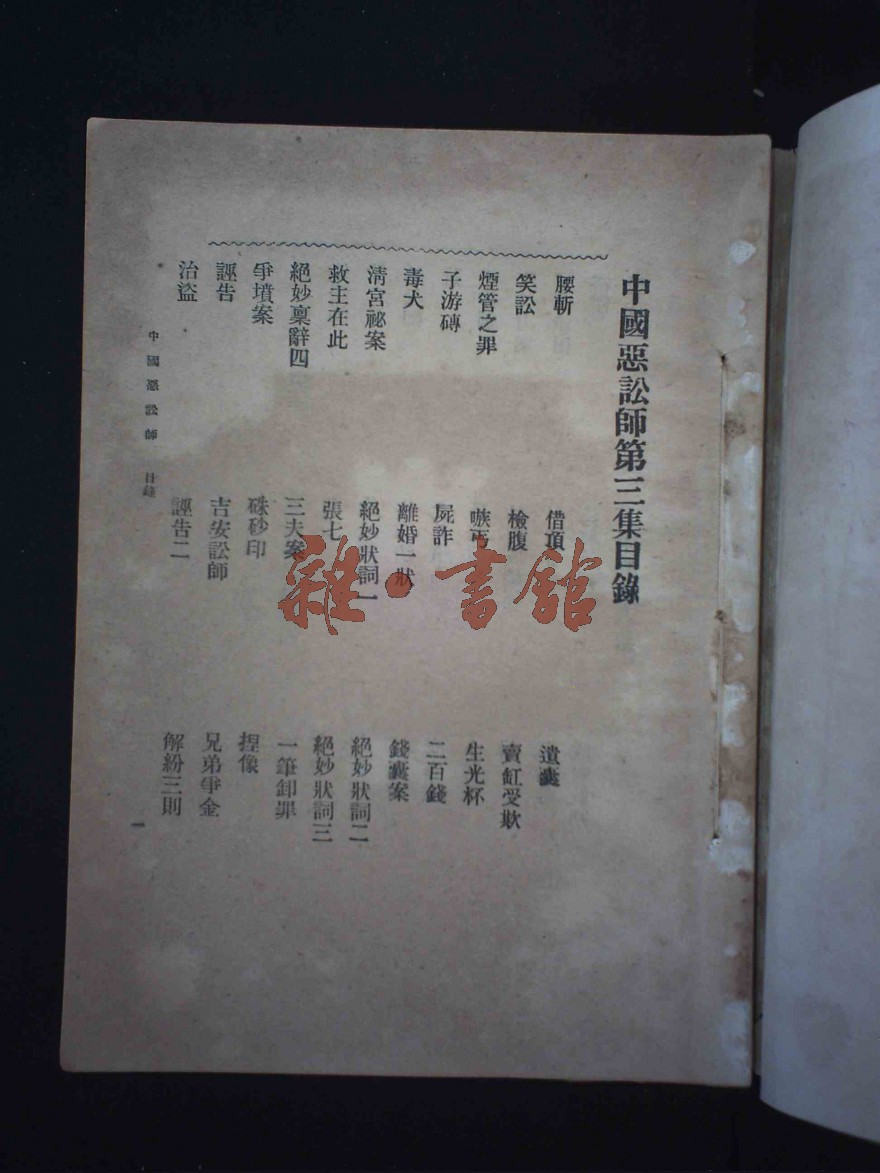 中國惡訟師第三集目錄
腰斬
借項
遺囊
笑訟
檢腹
賣缸受欺
煙管之罪
嗾丐
生光杯
子游磚
屍詐
二百錢
毒犬
離婚一狀
錢囊案
清宮祕案
絕妙狀詞一
絕妙狀詞二
救主在此
張七
絕妙狀詞三
絕妙稟辭四
三夫案
一筆卸罪
爭墳案
硃砂印
捏像
誣告
吉安訟師
兄弟爭金
治盜
誣告二
解紛三則
中國惡訟師 目錄
一
雜·書館